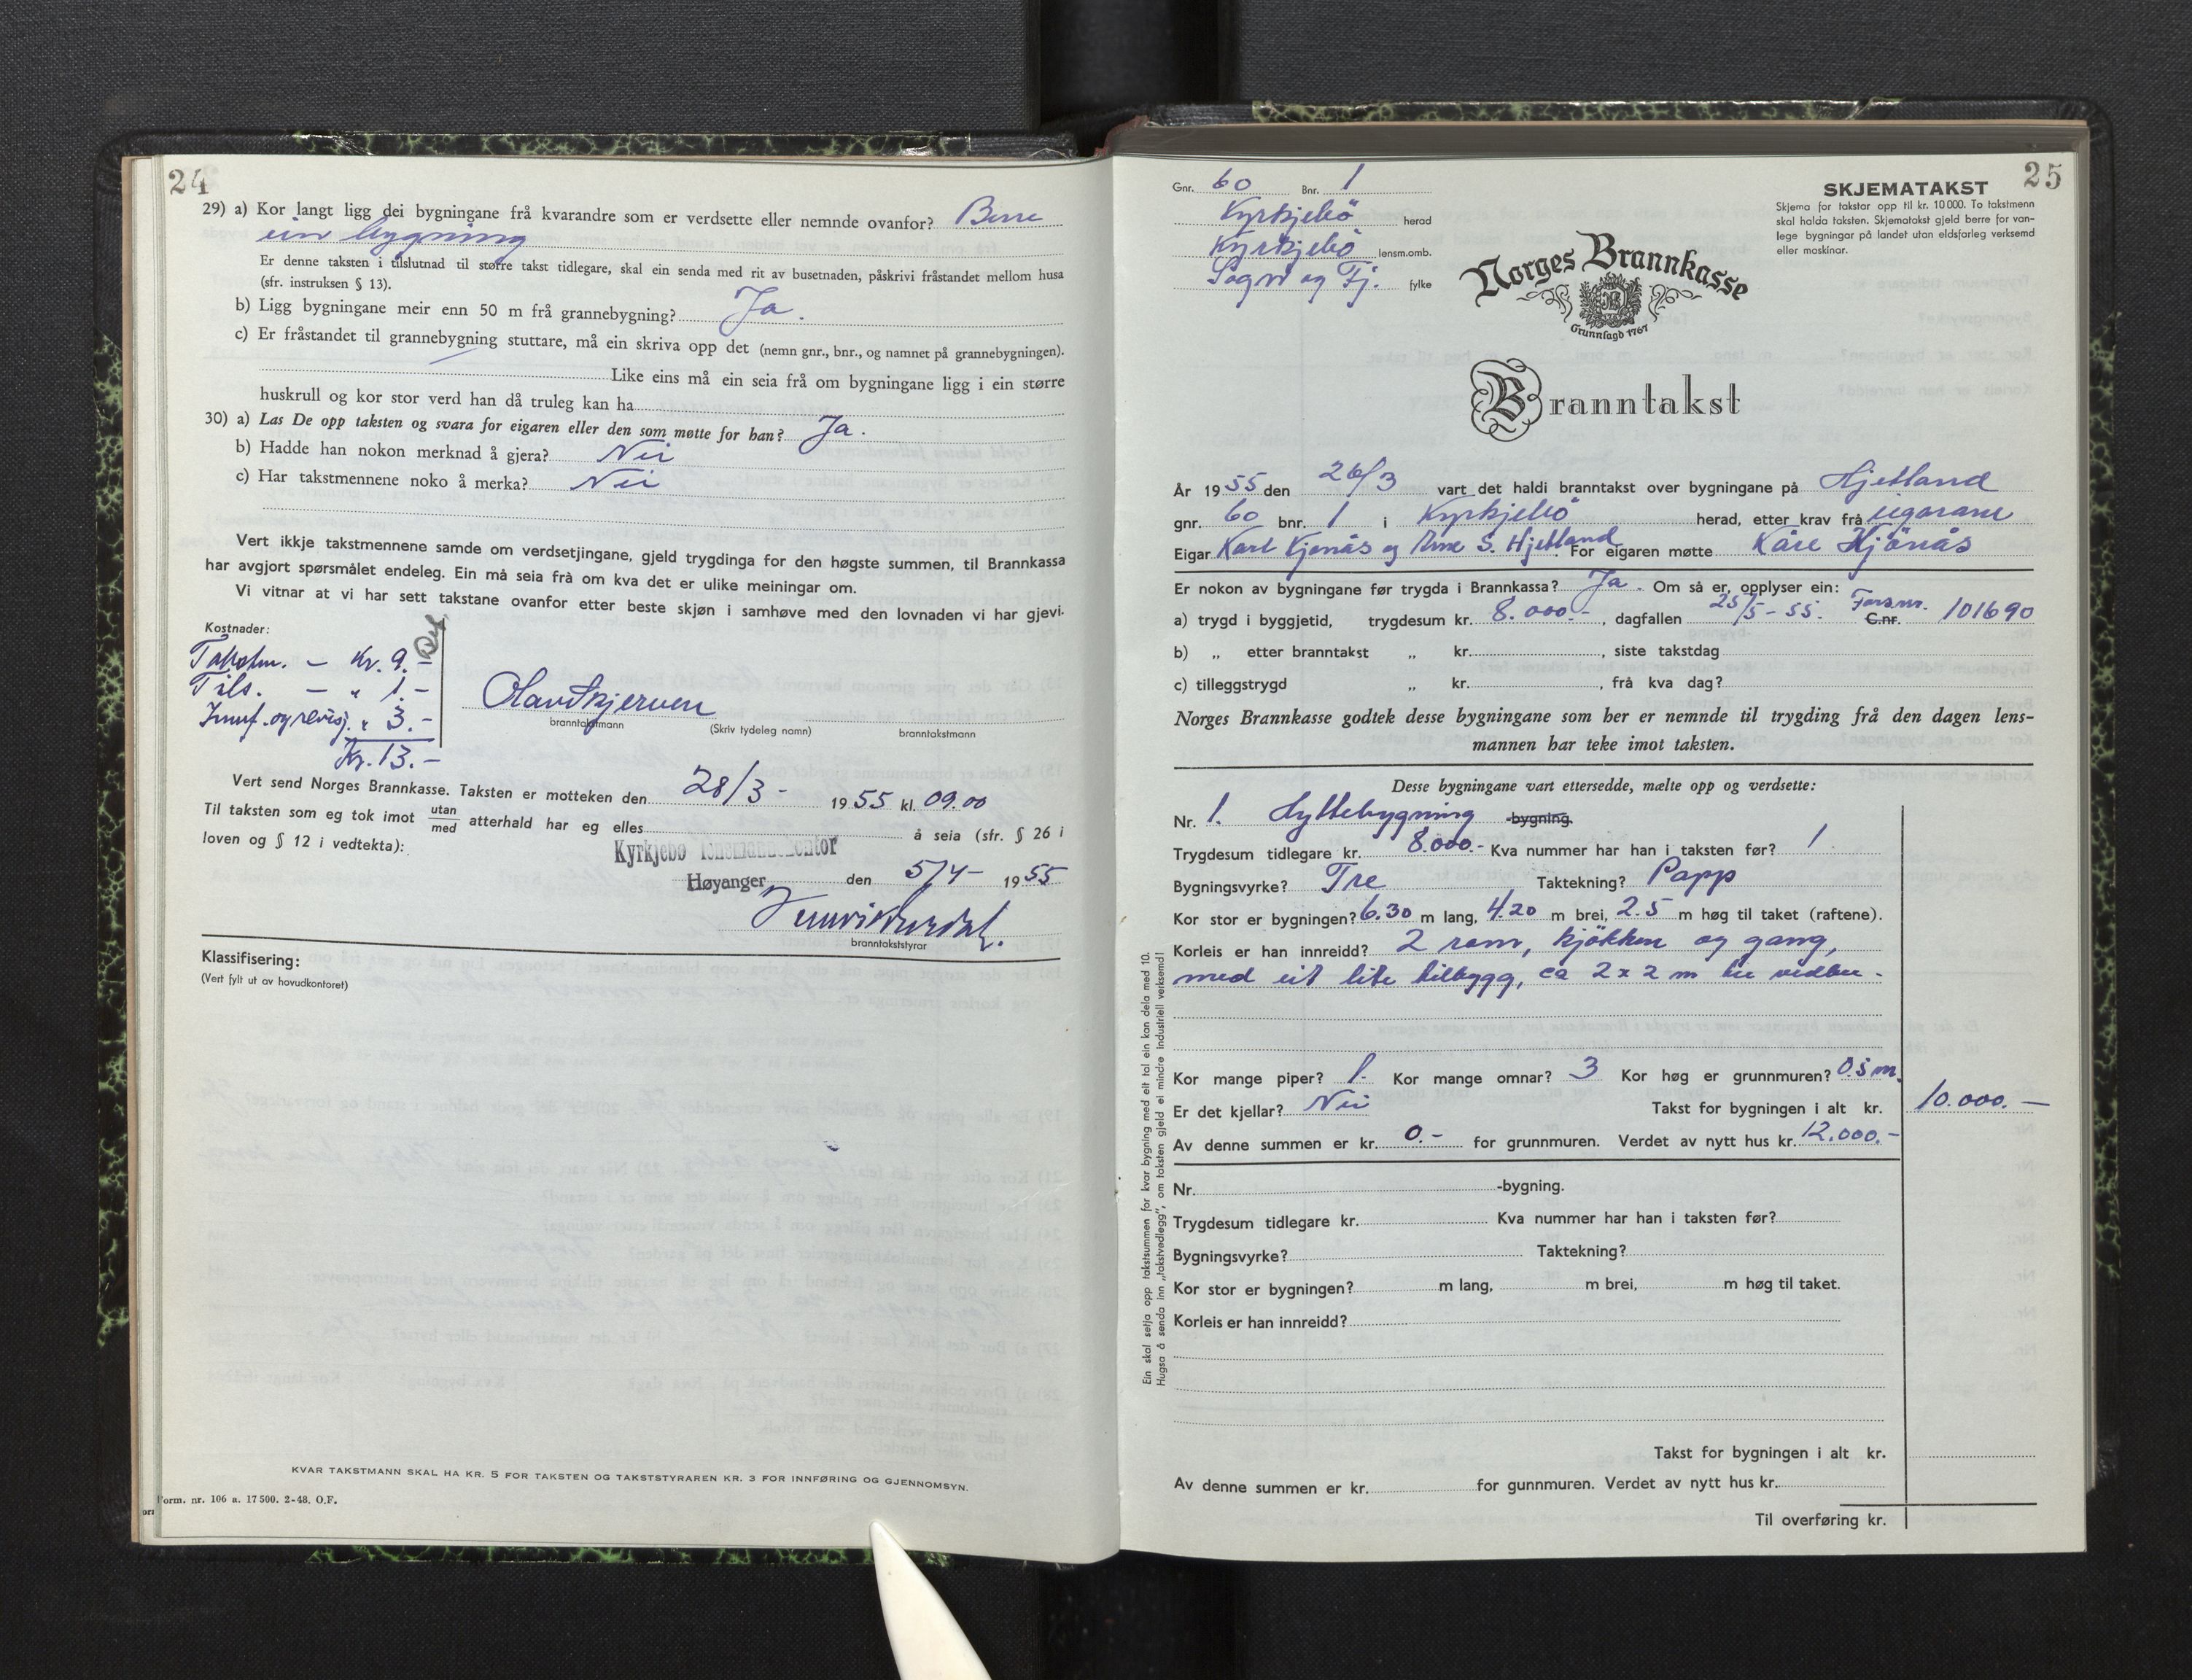 24
29) a) Kor langt ligg dei bygningane frå kvarandre som er verdsette eller nemnde ovanfor? Berre
ein bygning
Er denne taksten i tilslutnad til større takst tidlegare, skal ein senda med rit av busetnaden, påskrivi fråstandet mellom husa
(sfr. instruksen § 13).
b) Ligg bygningane meir enn 50 m frå grannebygning? Ja.
c) Er fråstandet til grannebygning stuttare, må ein skriva opp det (nemn gnr., bnr., og namnet på grannebygningen).
Like eins må ein seia frå om bygningane ligg i ein større
huskrull og kor stor verd han då truleg kan ha
30) a) Las De opp taksten og svara for eigaren eller den som møtte for han? Ja.
b) Hadde han nokon merknad å gjera? Nei
c) Har takstmennene noko å merka? Nei
Vert ikkje takstmennene samde om verdsetjingane, gjeld trygdinga for den høgste summen, til Brannkassa
har avgjort spørsmålet endeleg. Ein må seia frå om kva det er ulike meiningar om.
Vi vitnar at vi har sett takstane ovanfor etter beste skjøn i samhøve med den lovnaden vi har gjevi.
Kostnader:
Takstm. – Kr. 9.–
Tils. – " 1.–
Innf. og revisj. " 3.–
Kr. 13.–
branntakstmann
(Skriv tydeleg namn)
branntakstmann
Vert send Norges Brannkasse. Taksten er motteken den 28/3 – 1955 kl. 09.00
Til taksten som eg tok imot utan/med atterhald har eg elles å seia (sfr. § 26 i
loven og § 12 i vedtekta):
Kyrkjebø lensmannskontor
Høyanger den 5/4 – 1955
branntakststyrar
Klassifisering:
(Vert fylt ut av hovudkontoret)
KVAR TAKSTMANN SKAL HA KR. 5 FOR TAKSTEN OG TAKSTSTYRAREN KR. 3 FOR INNFØRING OG GJENNOMSYN.
Form. nr. 106 a. 17 500. 2-48. O.F.
25
Gnr. 60 Bnr. 1
Kyrkjebö herad
Kyrkjebö lensm.omb.
Sogn og Fj. fylke
SKJEMATAKST
Skjema for takstar opp til kr. 10 000. To takstmenn
skal halda taksten. Skjematakst gjeld berre for van-
lege bygningar på landet utan eldsfarleg verksemd
eller maskinar.
Norges Brannkasse
Grunnlagd 1767
Branntakst
År 1955 den 26/3 vart det haldi branntakst over bygningane på Hjetland
gnr. 60 bnr. 1 i Kyrkjebö herad, etter krav frå eigarane
Eigar Karl Kjønås og Arne S. Hjetland For eigaren møtte Kåre Hjönås
Er nokon av bygningane før trygda i Brannkassa? Ja. Om så er, opplyser ein:
a) trygd i byggjetid, trygdesum kr. 8.000.-, dagfallen 25/5 - 55. Forsnr. C.nr. 101690
b) „ etter branntakst „ kr. , siste takstdag
c) tilleggstrygd „ kr. , frå kva dag?
Norges Brannkasse godtek desse bygningane som her er nemnde til trygding frå den dagen lens-
mannen har teke imot taksten.
Desse bygningane vart ettersedde, mælte opp og verdsette:
Nr. 1. Hyttebygning -bygning.
Trygdesum tidlegare kr. 8.000.- Kva nummer har han i taksten før? 1
Bygningsvyrke? Tre Taktekning? Papp
Kor stor er bygningen? 6.30 m lang, 4.20 m brei, 2.5 m høg til taket (raftene).
Korleis er han innreidd? 2 rom, kjökken og gang,
med eit lite tilbygg, ca 2 x 2 m til vedbu.
Kor mange piper? 1. Kor mange omnar? 3 Kor høg er grunnmuren? 0.5 m.
Er det kjellar? Nei Takst for bygningen i alt kr. 10.000.—
Av denne summen er kr. 0.- for grunnmuren. Verdet av nytt hus kr. 12.000.-
Nr. -bygning.
Trygdesum tidlegare kr. Kva nummer har han i taksten før?
Bygningsvyrke? Taktekning?
Kor stor er bygningen? m lang, m brei, m høg til taket.
Korleis er han innreidd?
Takst for bygningen i alt kr.
Av denne summen er kr. for gunnmuren. Verdet av nytt hus kr.
Til overføring kr.
Ein skal setja opp takstsummen for kvar bygning med eit tal ein kan dela med 10.
Hugsa å senda inn „takstvedlegg“, om taksten gjeld ei mindre industriell verksemd!